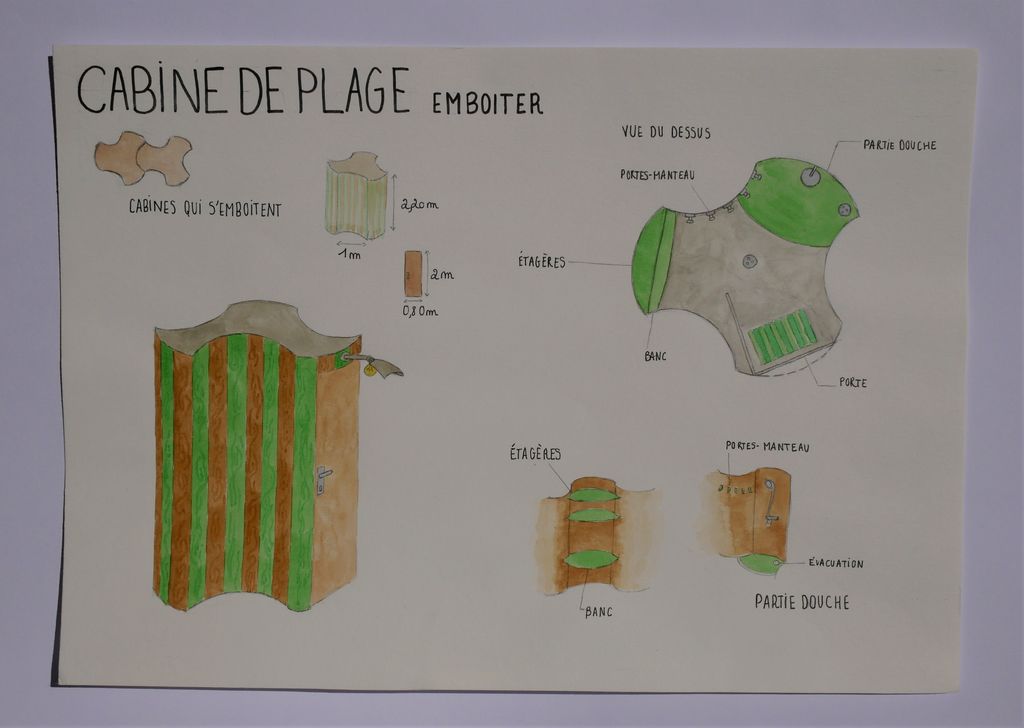 CABINE DE PLAGE EMBOITER
CABINES QUI S'EMBOÎTENT
2,20m
1m
2m
0,80m
VUE DU DESSUS
PARTIE DOUCHE
PORTES-MANTEAU
ÉTAGÈRES
BANC
PORTE
ÉTAGÈRES
BANC
PORTES-MANTEAU
ÉVACUATION
PARTIE DOUCHE